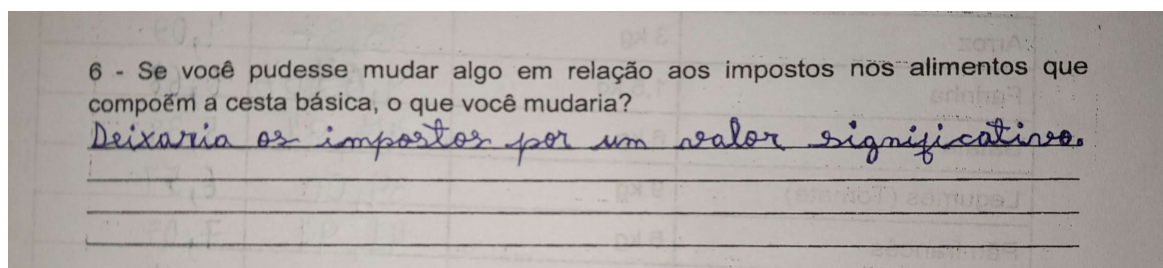 6 - Se você pudesse mudar algo em relação aos impostos nos alimentos que
compõem a cesta básica, o que você mudaria?
Deixaria os impostos por um valor significativo.